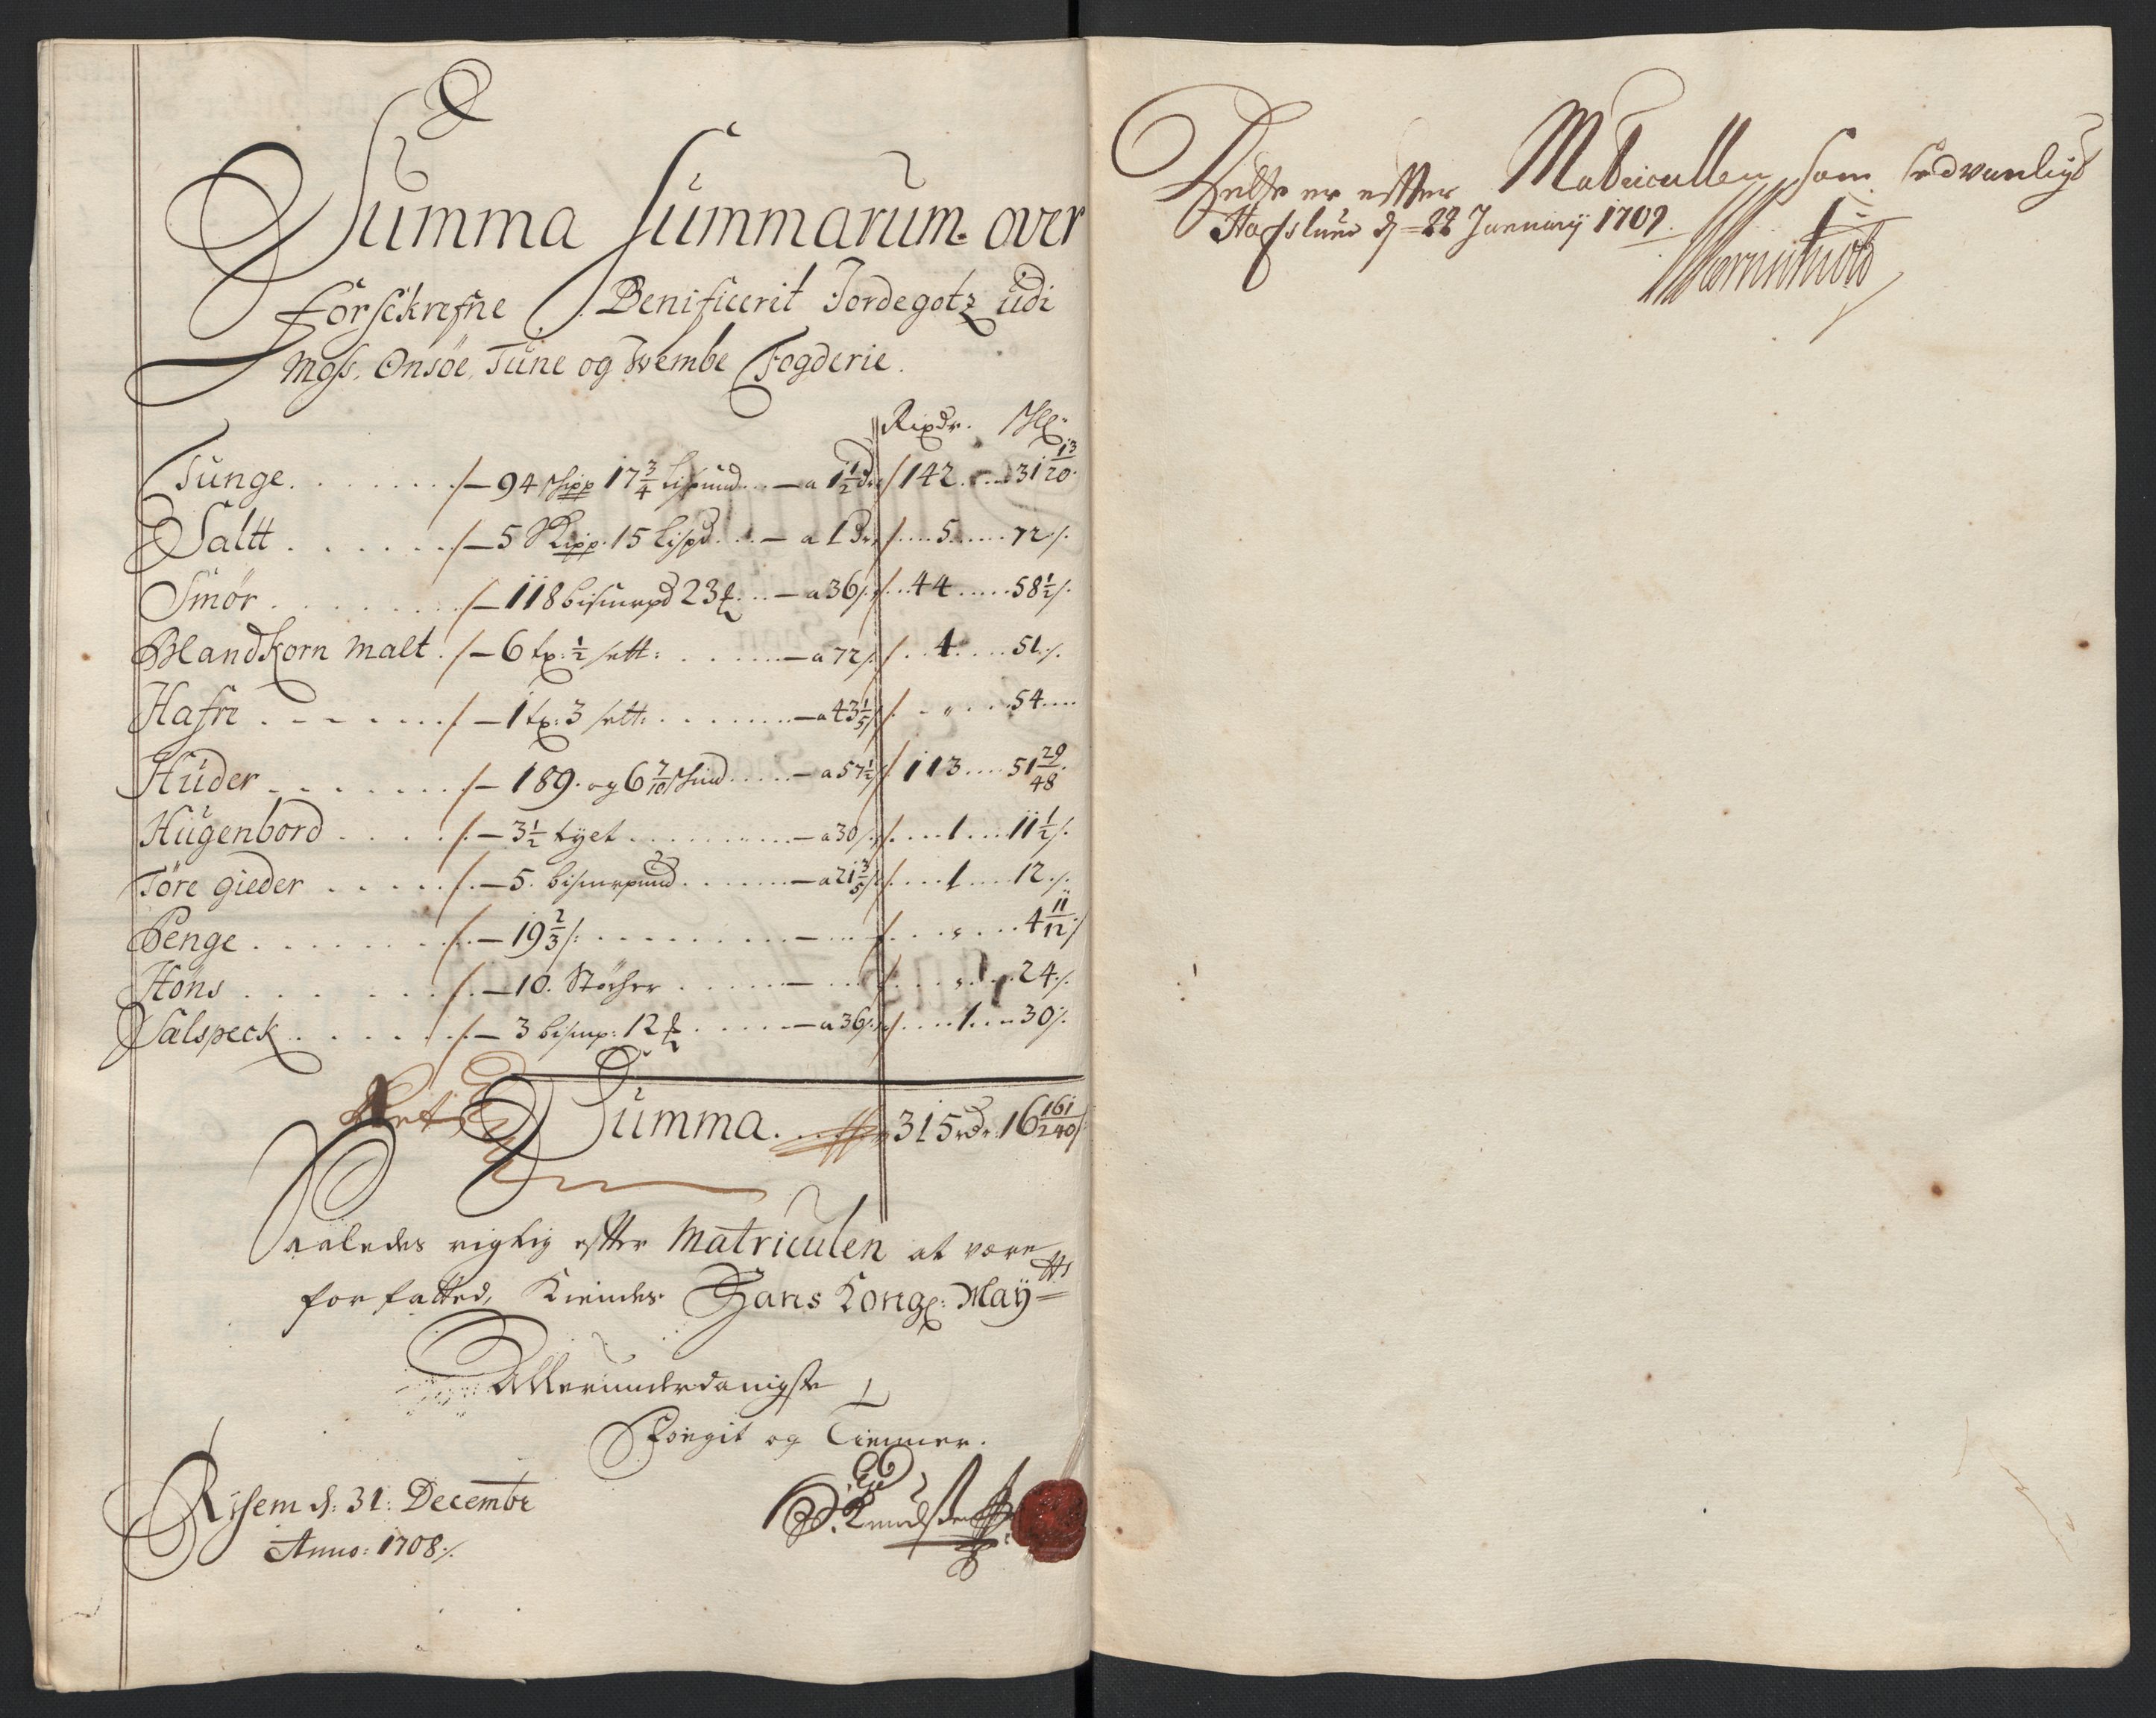 Summa Summarum over
forschrefne Benificerit Jordegotz udi
Mose, Onsöe, Tune og Wembe Fogderie.
Rixdr. ẞl:
Tunge . . . 94 skipp 17 3/4 lispund . . . a 1 1/2 dr 142 . . . 31 13/20
Saltt . . . 5 Skipp. 15 lispd . . . a 1 dr 5 . . . 72 ./.
Smör . . . 118 bismrpd 23 ℔ . . . a 36 ./. 44 . . . 58 1/2 ./.
Blandkorn Malt . 6 tn: 1/2 sett: . . . a 72 ./. 4 . . . 51 ./.
Hafre . . . 1 tn: 3 sett: . . . a 43 1/5 „ . . . 54 . . .
Huder . . . 189. og 6 7/10 skind . . . a 57 1/2 113 . . . 51 29/48
Hugenbord . . . 3 1/2 tyet . . . a 30 ./. 1 . . . 11 1/2 ./.
Töre gieder . . . 5. bismrpund . . . a 21 3/5 1 . . . 12 ./.
Penge . . . 19 2/3 ./. . . . „ . . . 4 11/12
Höns . . . 10. Stöcher . . . „ . . . 24 ./.
Salspeck . . . 3 bismp: 12 ℔ . . . a 36 ./. 1 . . . 30 ./.
Summa . . . 315 rdr: 16 161/240
Saaledes rigtig efter Matriculen at være
forfatted, Kiendes Hans Kongl: Maytts
Allerunderdanigste
Pligt og Tienner.
Risem d: 31: Decembr
Anno: 1708 ./.
Knudsen
Dette er efter Matricullen som sædvanligt
Hafslund d 22 January 1709.